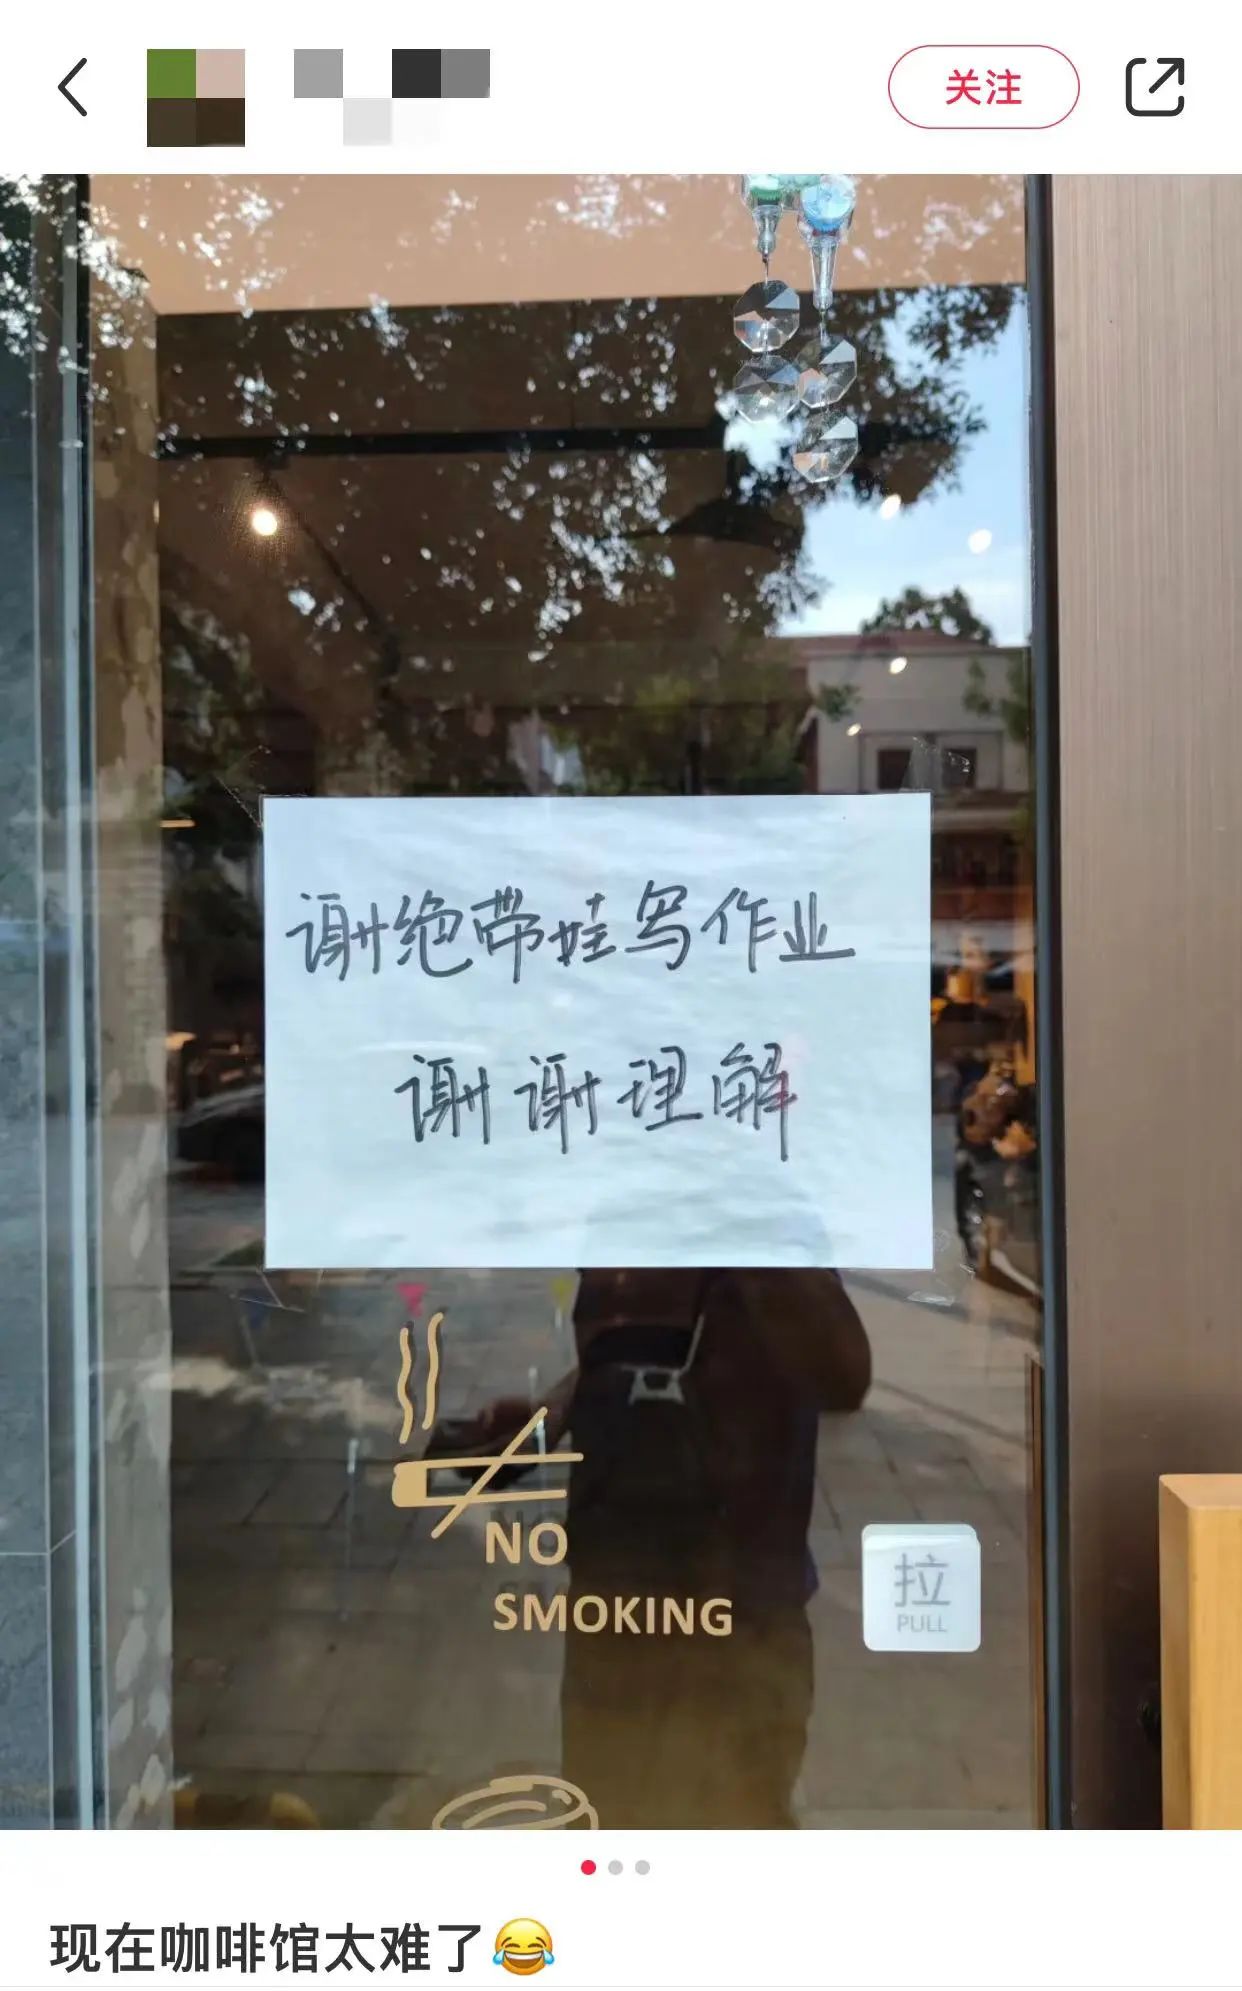 关注
谢绝带娃写作业
谢谢理解
NO
SMOKING
拉
PULL
现在咖啡馆太难了😂